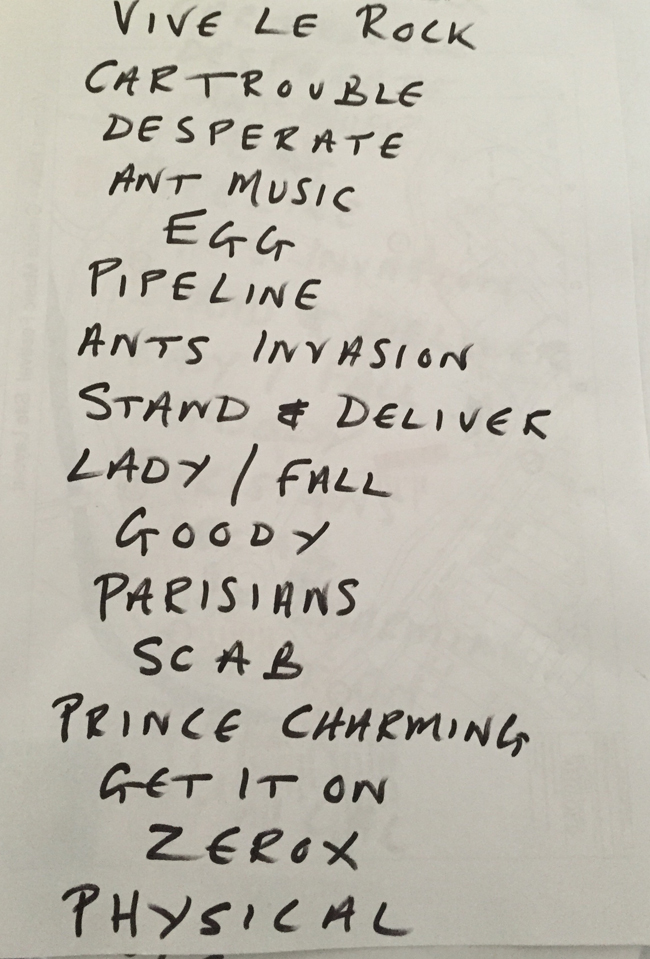 VIVE LE ROCK
CAR TROUBLE
DESPERATE
ANT MUSIC
EGG
PIPELINE
ANTS INVASION
STAND & DELIVER
LADY / FALL
GOODY
PARISIANS
SCAB
PRINCE CHARMING
GET IT ON
ZEROX
PHYSICAL